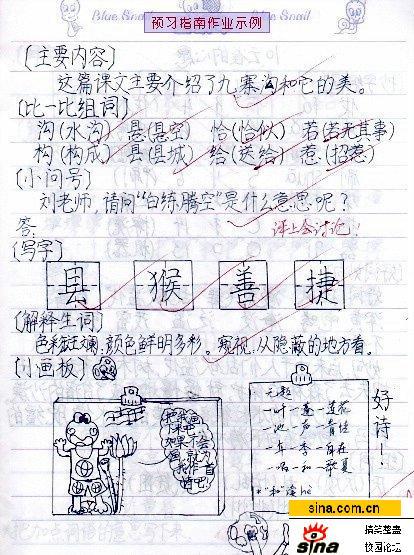 Blue Snail
Blue Snail
预习指南作业示例
(主要内容)
这篇课文主要介绍了九寨沟和它的美。
(比一比组词)
沟(水沟) 悬(悬空) 恰(恰似) 若(若无其事)
构(构成) 县(县城) 给(送给) 惹(招惹)
(小问号)
刘老师,请问“白练腾空”是什么意思呢?
答: 课上会讨论!
(写字)
县 猴 善 捷
(解释生词)
色彩斑斓:颜色鲜明多彩。窥视:从隐蔽的地方看。
(小画板)
把我画下来吧,如果不会画,就为我作一首诗吧!
无题
一叶一莲一莲花
一池一声一青蛙
一年一季一自在
一唱一和一盛夏
*“和”读hè
好诗!
sina.com.cn
sina 搞笑整蛊
校园论坛